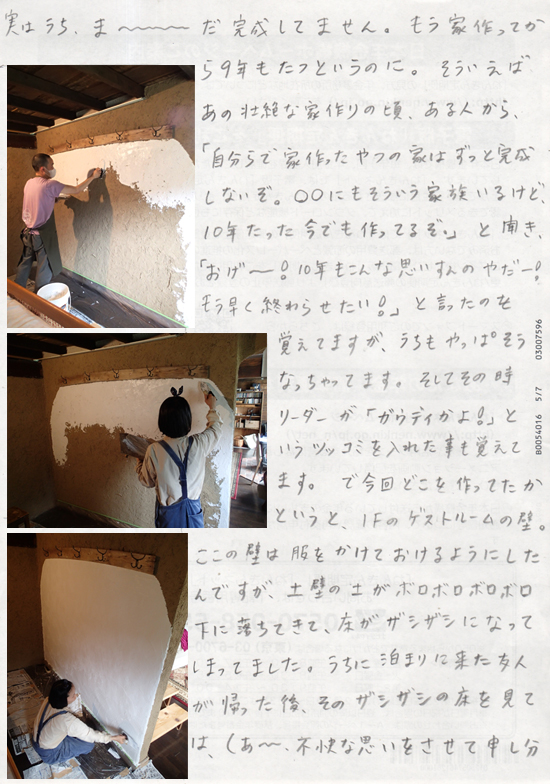 実はうち、ま〜〜〜〜だ完成してません。もう家作ってか
ら9年もたつというのに。そういえば
あの壮絶な家作りの頃、ある人から、
「自分らで家作ったやつの家はずっと完成
しないぞ。〇〇にもそういう家族いるけど、
10年たった今でも作ってるぞ。」と聞き、
「おげ〜！10年もこんな思いすんのやだー！
もう早く終わらせたい！」と言ったのを
覚えてますが、うちもやっぱそう
なっちゃってます。そしてその時
リーダーが「ガウディかよ！」と
いうツッコミを入れた事も覚えて
ます。で今回どこを作ってたか
というと、1Fのゲストルームの壁。
ここの壁は服をかけておけるようにした
んですが、土壁の土がボロボロボロボロ
下に落ちてきて、床がザシザシになって
しまってました。うちに泊まりに来た友人
が帰った後、そのザシザシの床を見て
は、（あ〜、不快な思いをさせて申し分
B0054016 5/7 03007596